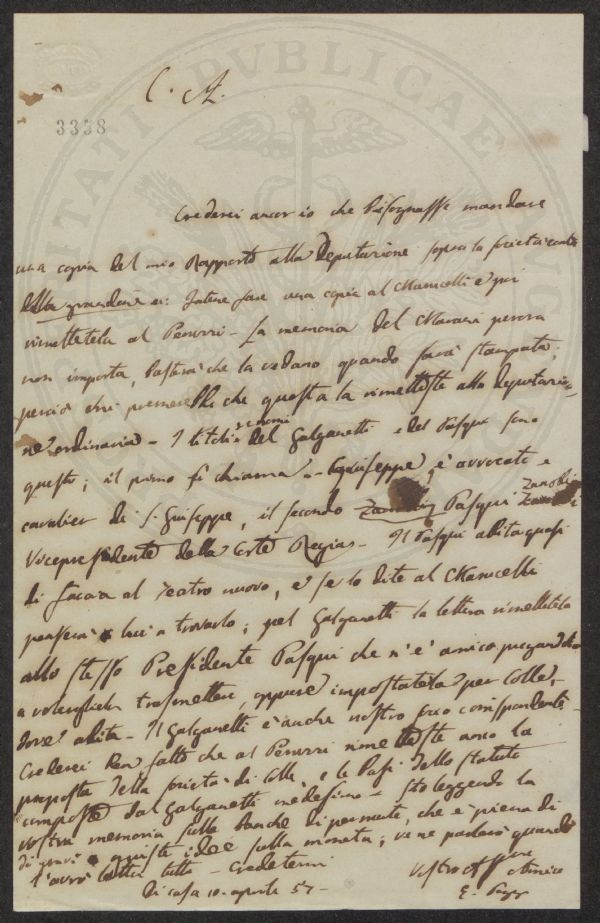 C. A.
3358
PVBLICAE
Crederei ancor io che bisognasse mandare
una copia del mio Rapporto alla Deputazione sopra la società contro
della grandine ei: fatene fare una copia al Manicelli e poi
rimettetela al Peruzzi - La memoria del
non importa, basterà che la vedano quando sarà stampata,
perciò che questa la rimetteste alla deputazio
ne ordinaria - I titoli e nomi del Galganetti e del Pasqui sono
questi; il primo si chiama Giuseppe, è avvocato e
cavalier di S. Giuseppe, il secondo Pasqui Zanobi
Vicepresidente della Corte Regia - Il Pasqui abita quasi
di faccia al Teatro nuovo, e se lo dite al Manicelli
penserà lui a trovarlo; pel Galganetti la lettera rimettetela
allo stesso Presidente Pasqui che n'è amico pregandolo
a volergliela trasmettere, oppure impostatela per Colle,
dove abita - Il Galganetti è anche nostro socio corrispondente -
Crederei ben fatto che al Peruzzi rimetteste anco la
proposta della società di Colle, e le basi dello statuto
composte dal Galganetti medesimo - Sto leggendo la
vostra memoria sulle banche, che è piena di
di gravi e giuste idee sulla moneta; ve ne parlerò quando
l'avrò letta tutta - Credetemi
Di casa 10 aprile 57 -
Vostro Aff. Amico
E.